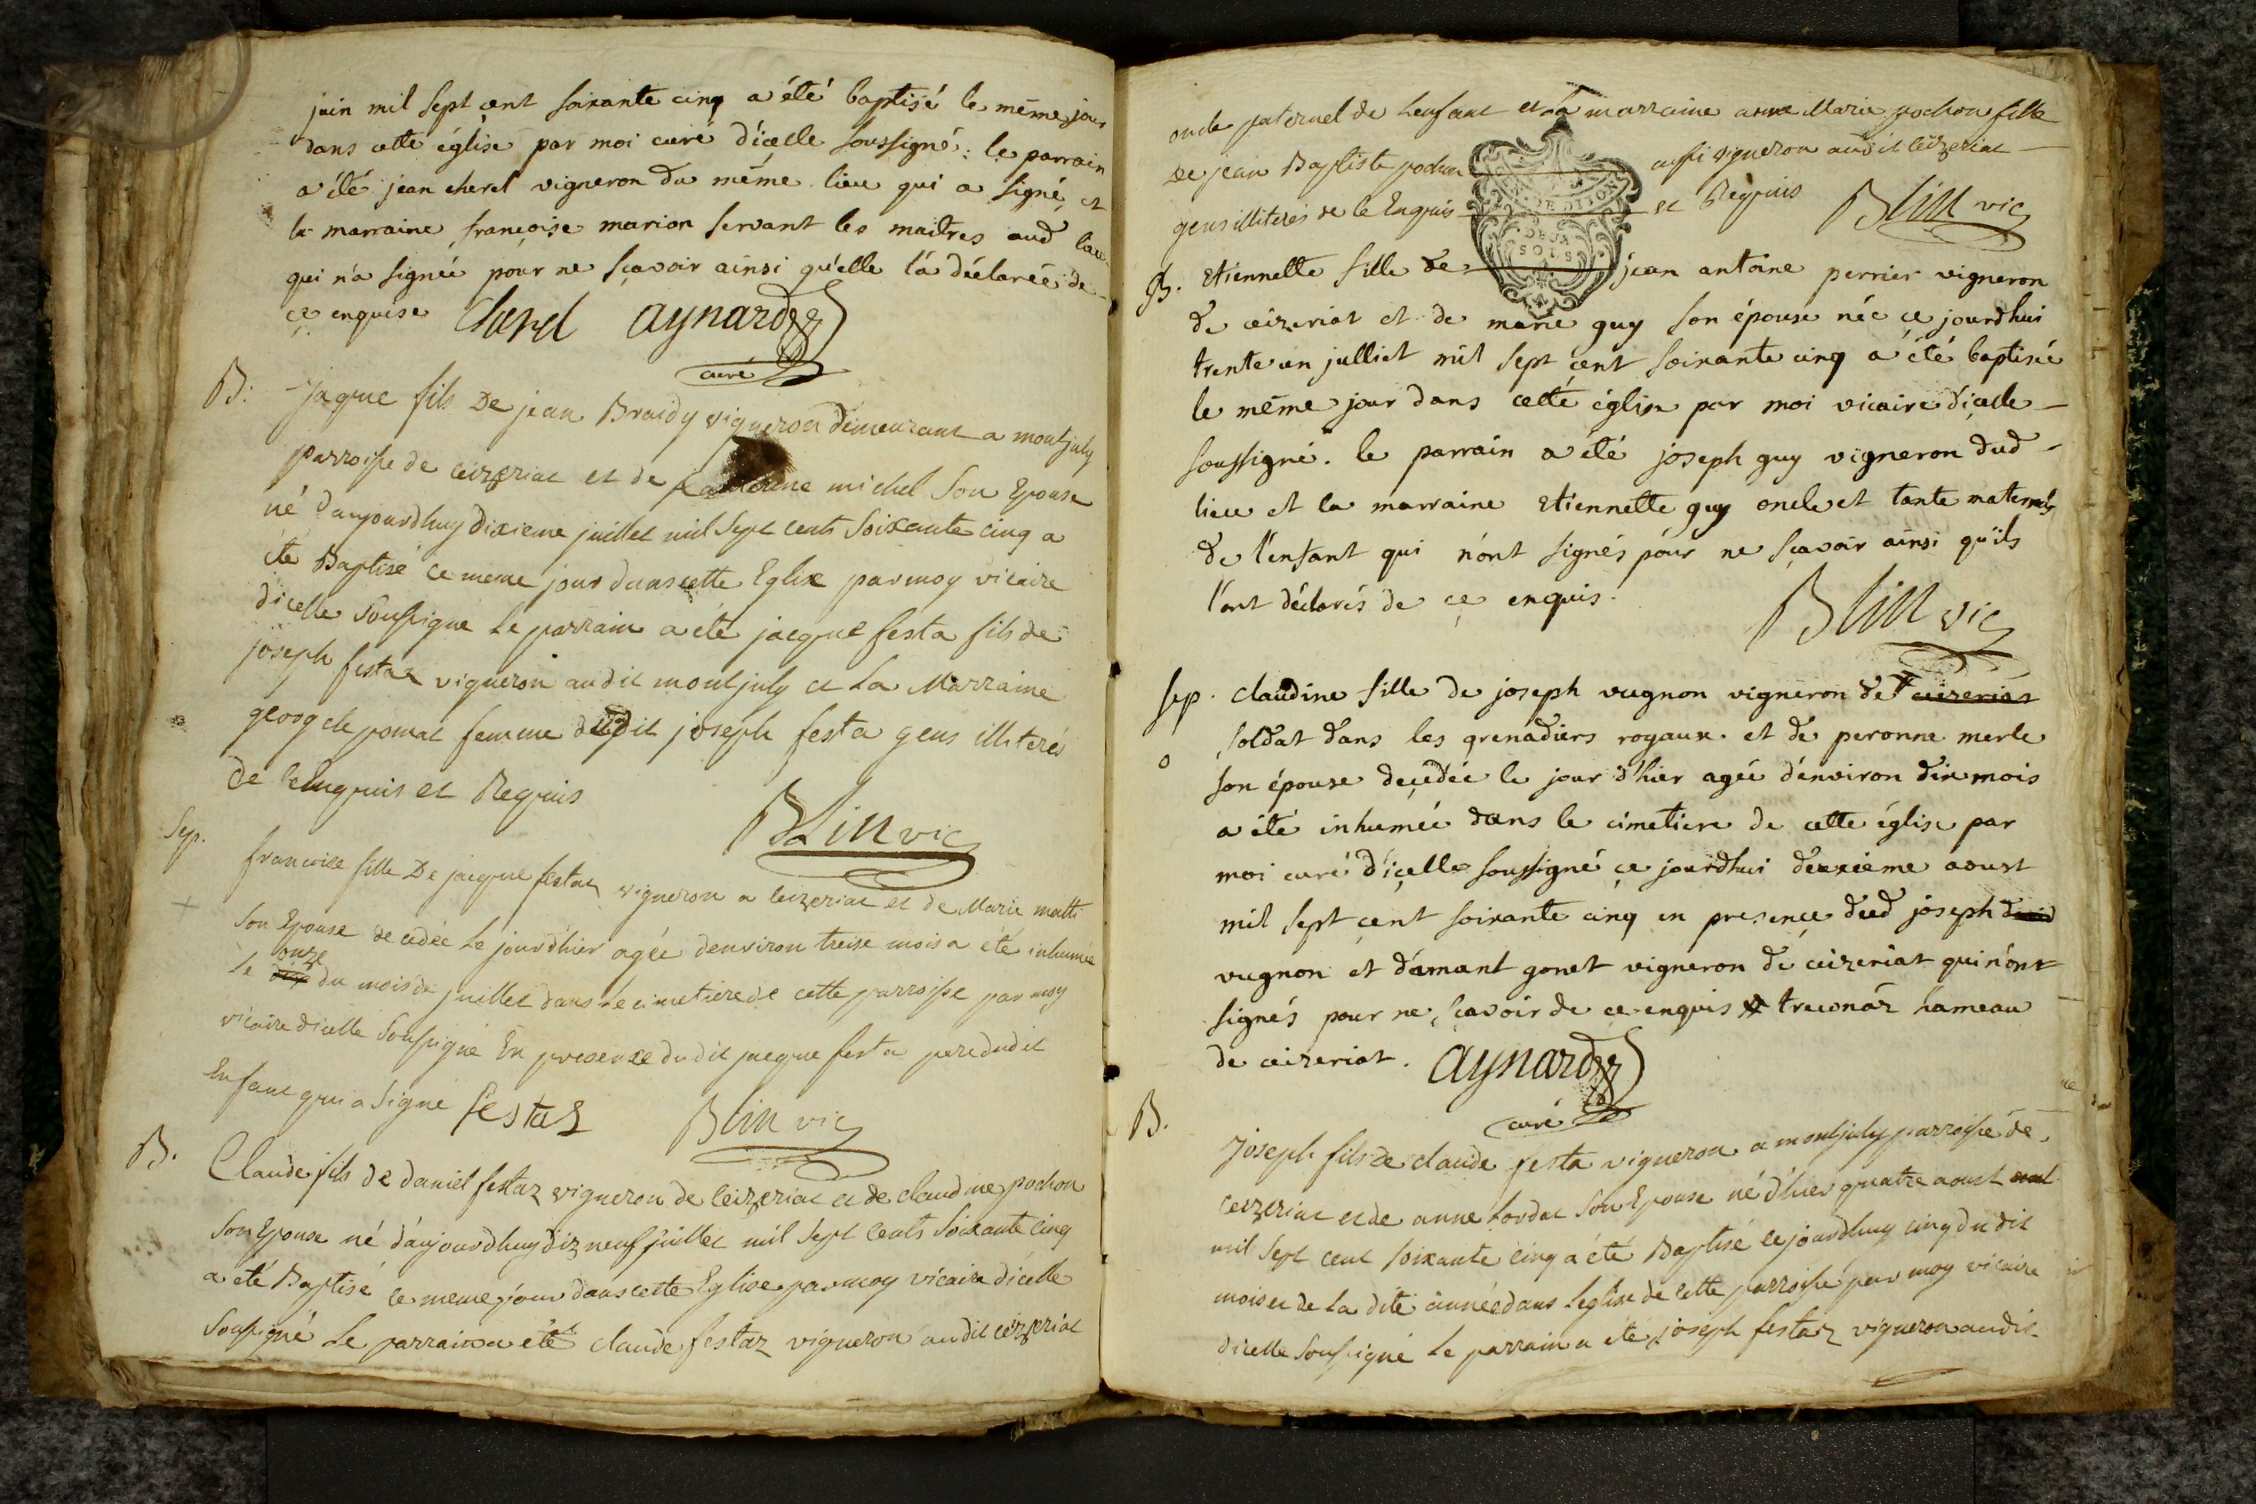 juin mil sept cent soixante cinq a été baptisé le même jour
dans cette église par moi curé d'icelle soussigné; le parrain
a été jean cherel vigneron du même lieu qui a signé, et
la marraine françoise marion servant les maitres aud lieu
qui n'a signée pour ne sçavoir ainsi qu'elle l'a déclarée de
ce enquise Cherel Aynard
curé
B. Jaque fils De jean Braidy vigneron demeurant a montjuly
parroisse de ceizeriat et de michel Son Epouse
né daujourdhuy dixieme juillet mil Sept cents Soixante cinq a
eté Baptisé ce meme jour dans cette Eglise par moy vicaire
dicelle Soussigne Le parrain a été jacque festa fils de
joseph festaz vigneron audit montjuly et La Marraine
pomat femme dudit joseph festa gens illiterés
de ce Enquis et Requis
Blin vic
Sep. francoise fille De jacque festaz vigneron a ceizeriat et de Marie
Son Epouse decedée Le jourdhier agée denviron treise mois a été inhumée
Le onze du mois de juillet dans Le cimetiere de cette parroisse par moy
vicaire dicelle Soussigné En presence dudit jacque festa pere dudit
Enfant qui a Signé festaz Blin vic
B. Claude fils de daniel festaz vigneron de Ceizeriat et de claudine pochon
Son Epouse né daujourdhuy dix neuf juillet mil Sept Cents Soixante Cinq
a été Baptisé ce meme jour dans cette Eglise par moy vicaire dicelle
Soussigné Le parrain a été claude festaz vigneron audit ceizeriat
oncle paternel de Lenfant et La marraine anne Marie pochon fille
de jean Baptiste pochon aussi vigneron audit Ceizeriat
gens illiterés de Ce Enquis et Requis Blin vic
GEN. DE DIJON
DEUX
SOLS
B. Etiennette fille de jean antoine perrier vigneron
de ceizeriat et de marie guy son épouse née ce jourdhui
trente un julliet mil sept cent soixante cinq a été baptisée
le même jour dans cette église par moi vicaire d'icelle
soussigné. le parrain a été joseph guy vigneron dud
lieu et la marraine Etiennette guy oncle et tante maternels
de l'enfant qui n'ont signés pour ne sçavoir ainsi qu'ils
l'ont déclarés de ce enquis.
Blin vic
Sep. claudine fille de joseph vugnon vigneron de ceizeriat
soldat dans les grenadiers royaux et de peronne merle
son épouse decédée le jour d'hier agée d'environ dix mois
a été inhumée dans le cimetiere de cette église par
moi curé d'icelle soussigné ce jourdhui deuxième aoust
mil sept cent soixante cinq en presence dud joseph
vugnon et d'amant gonet vigneron de ceizeriat qui n'ont
signés pour ne sçavoir de ce enquis treconaz hameau
de ceizeriat. Aynard
curé
B. Joseph fils De claude festa vigneron a montjuly parroisse de
Ceizeriat et de anne Son Epouse né d'hier quatre aoust
mil Sept cent soixante Cinq a été Baptisé ce jourdhuy cinq du dit
mois et de La dite année dans Leglise de Cette parroisse par moy vicaire
dicelle Soussigné Le parrain a été joseph festaz vigneron audit